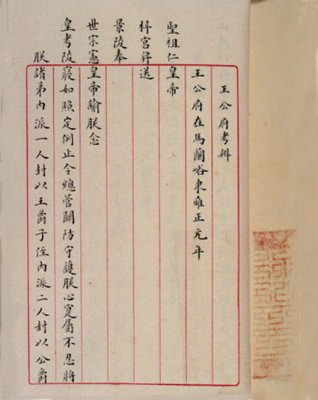 王公府考辨
王公府在馬蘭峪東雍正元年
聖祖仁皇帝
梓宮昇送
景陵奉
世宗憲皇帝諭朕念
皇考陵寢如照定例止令總管關防守護朕心寔屬不忍將
朕諸弟內派一人封以王爵子侄內派二人封以公爵